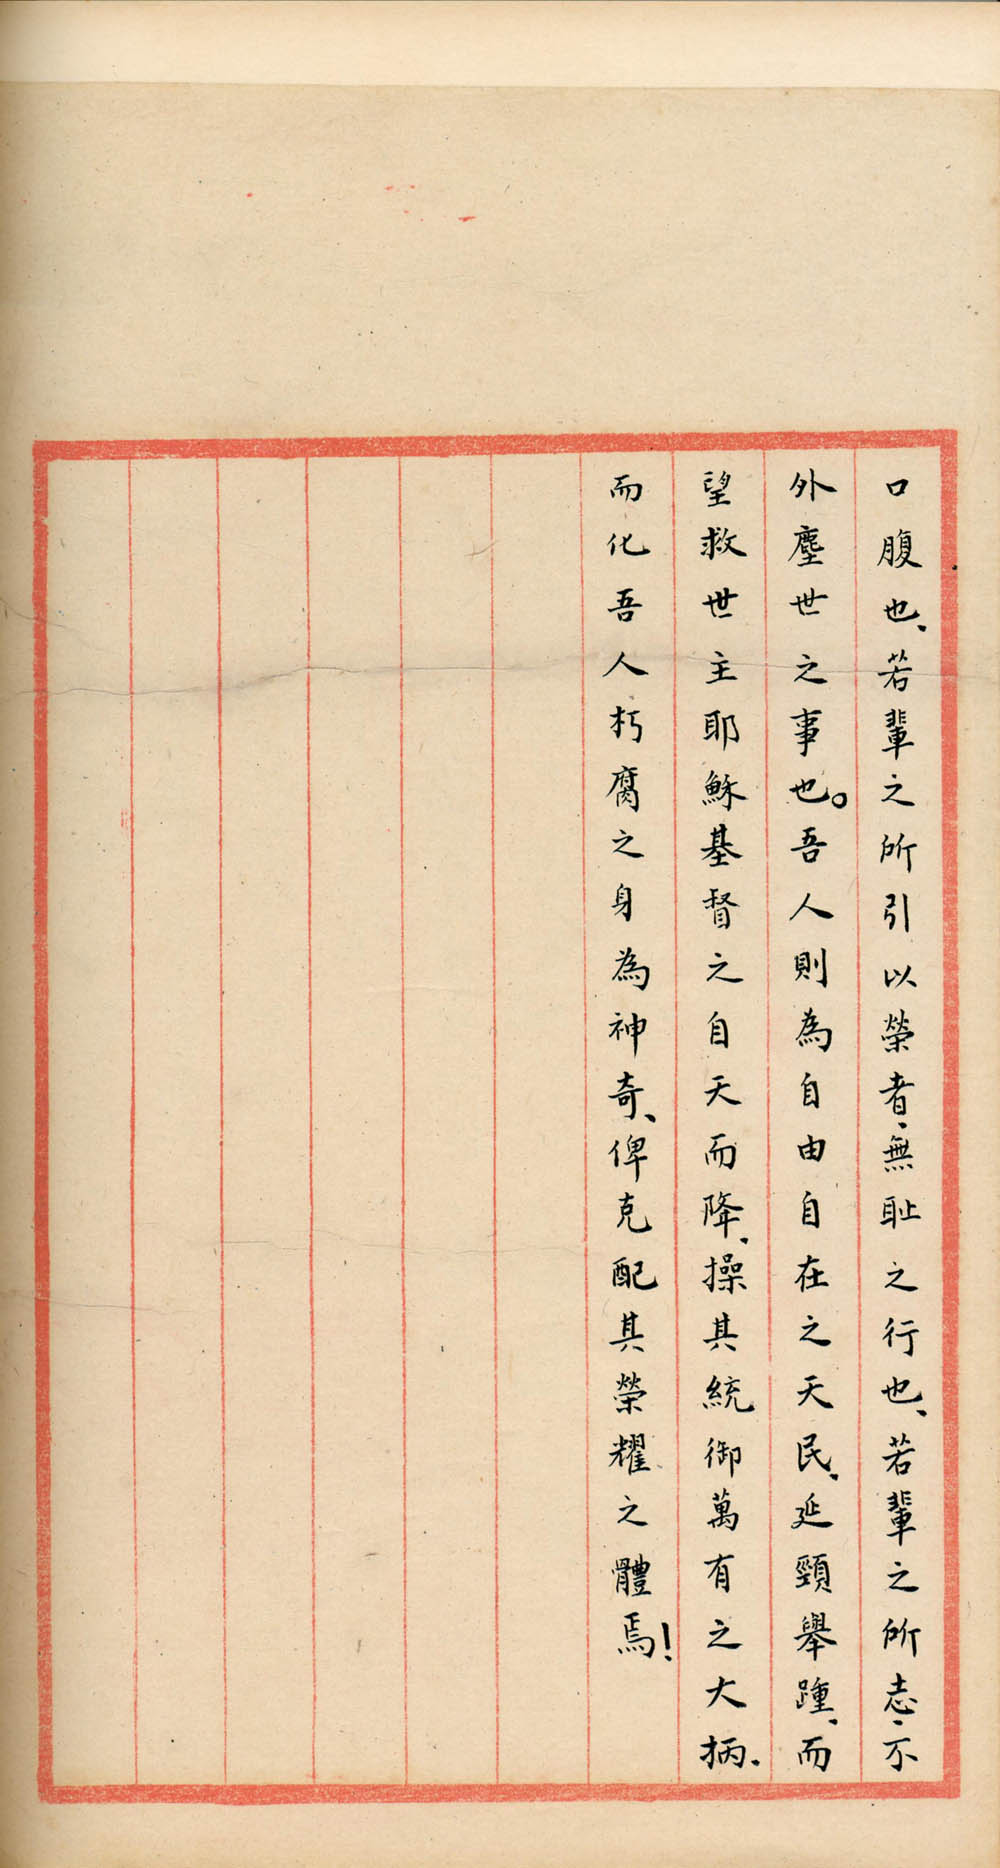 口腹也、若輩之所引以榮者、無恥之行也、若輩之所志、不
外塵世之事也。吾人則為自由自在之天民、延頸舉踵、而
望救世主耶穌基督之自天而降、操其統御萬有之大柄.
而化吾人朽腐之身為神奇、俾克配其榮耀之體焉!